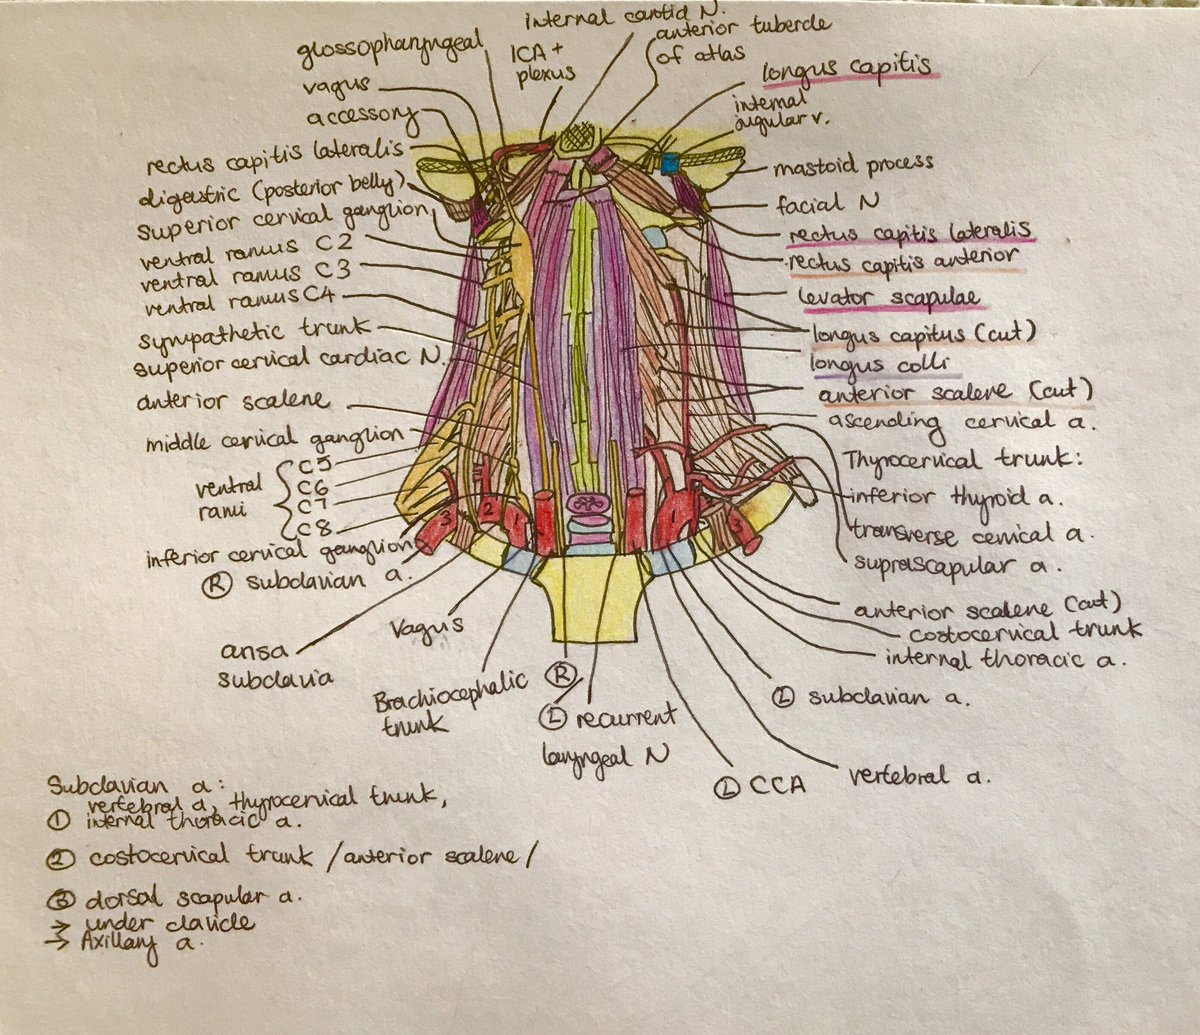 internal carotid N.
glossopharyngeal
ICA +
plexus
anterior tubercle
of atlas
vagus
accessory
longus capitis
internal
jugular v.
rectus capitis lateralis
digastric (posterior belly)
superior cervical ganglion
ventral ramus C2
ventral ramus C3
ventral ramus C4
sympathetic trunk
superior cervical cardiac N.
anterior scalene
middle cervical ganglion
ventral
rami
C5
C6
C7
C8
inferior cervical ganglion
Ⓡ subclavian a.
ansa
subclavia
Vagus
Brachiocephalic
trunk
Ⓡ
Ⓛ recurrent
laryngeal N
mastoid process
facial N
rectus capitis lateralis
rectus capitis anterior
levator scapulae
longus capitus (cut)
longus colli
anterior scalene (cut)
ascending cervical a.
Thyrocervical trunk:
inferior thyroid a.
transverse cervical a.
suprascapular a.
anterior scalene (cut)
costocervical trunk
internal thoracic a.
Ⓛ subclavian a.
vertebral a.
Ⓛ CCA
3
2
1
1
2
3
Subclavian a:
vertebral a, thyrocervical trunk,
① internal thoracic a.
② costocervical trunk /anterior scalene/
③ dorsal scapular a.
→ under clavicle
→ Axillary a.